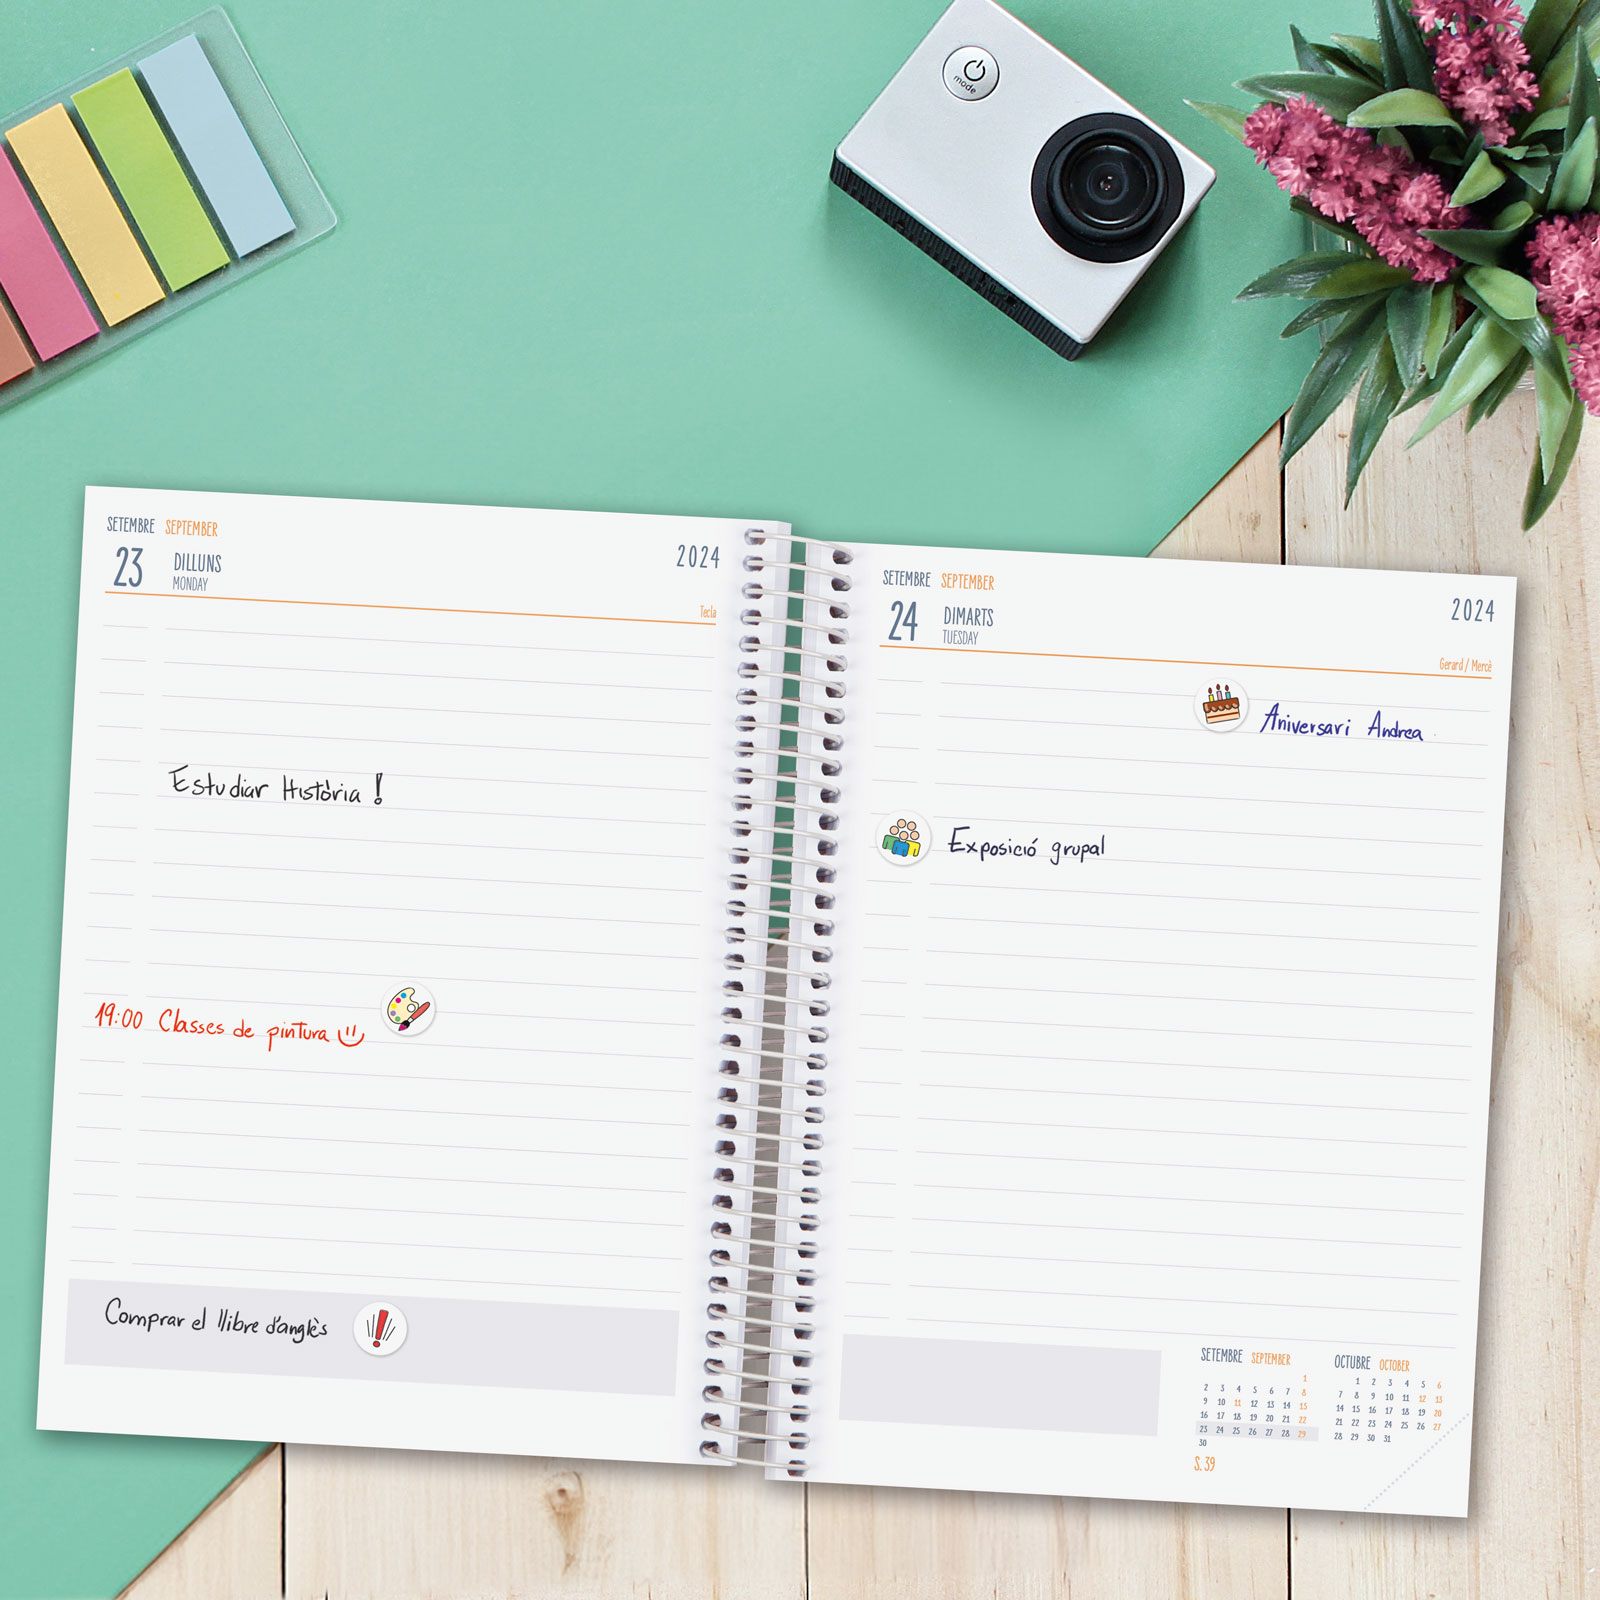 mode
SETEMBRE SEPTEMBER
23 DILLUNS 2024
MONDAY
Tecla
Estudiar Història !
19:00 Classes de pintura
Comprar el llibre d'anglès
SETEMBRE SEPTEMBER
24 DIMARTS 2024
TUESDAY
Gerard / Mercè
Aniversari Andrea
Exposició grupal
SETEMBRE SEPTEMBER
1
2 3 4 5 6 7 8
9 10 11 12 13 14 15
16 17 18 19 20 21 22
23 24 25 26 27 28 29
30
S. 39
OCTUBRE OCTOBER
1 2 3 4 5 6
7 8 9 10 11 12 13
14 15 16 17 18 19 20
21 22 23 24 25 26 27
28 29 30 31